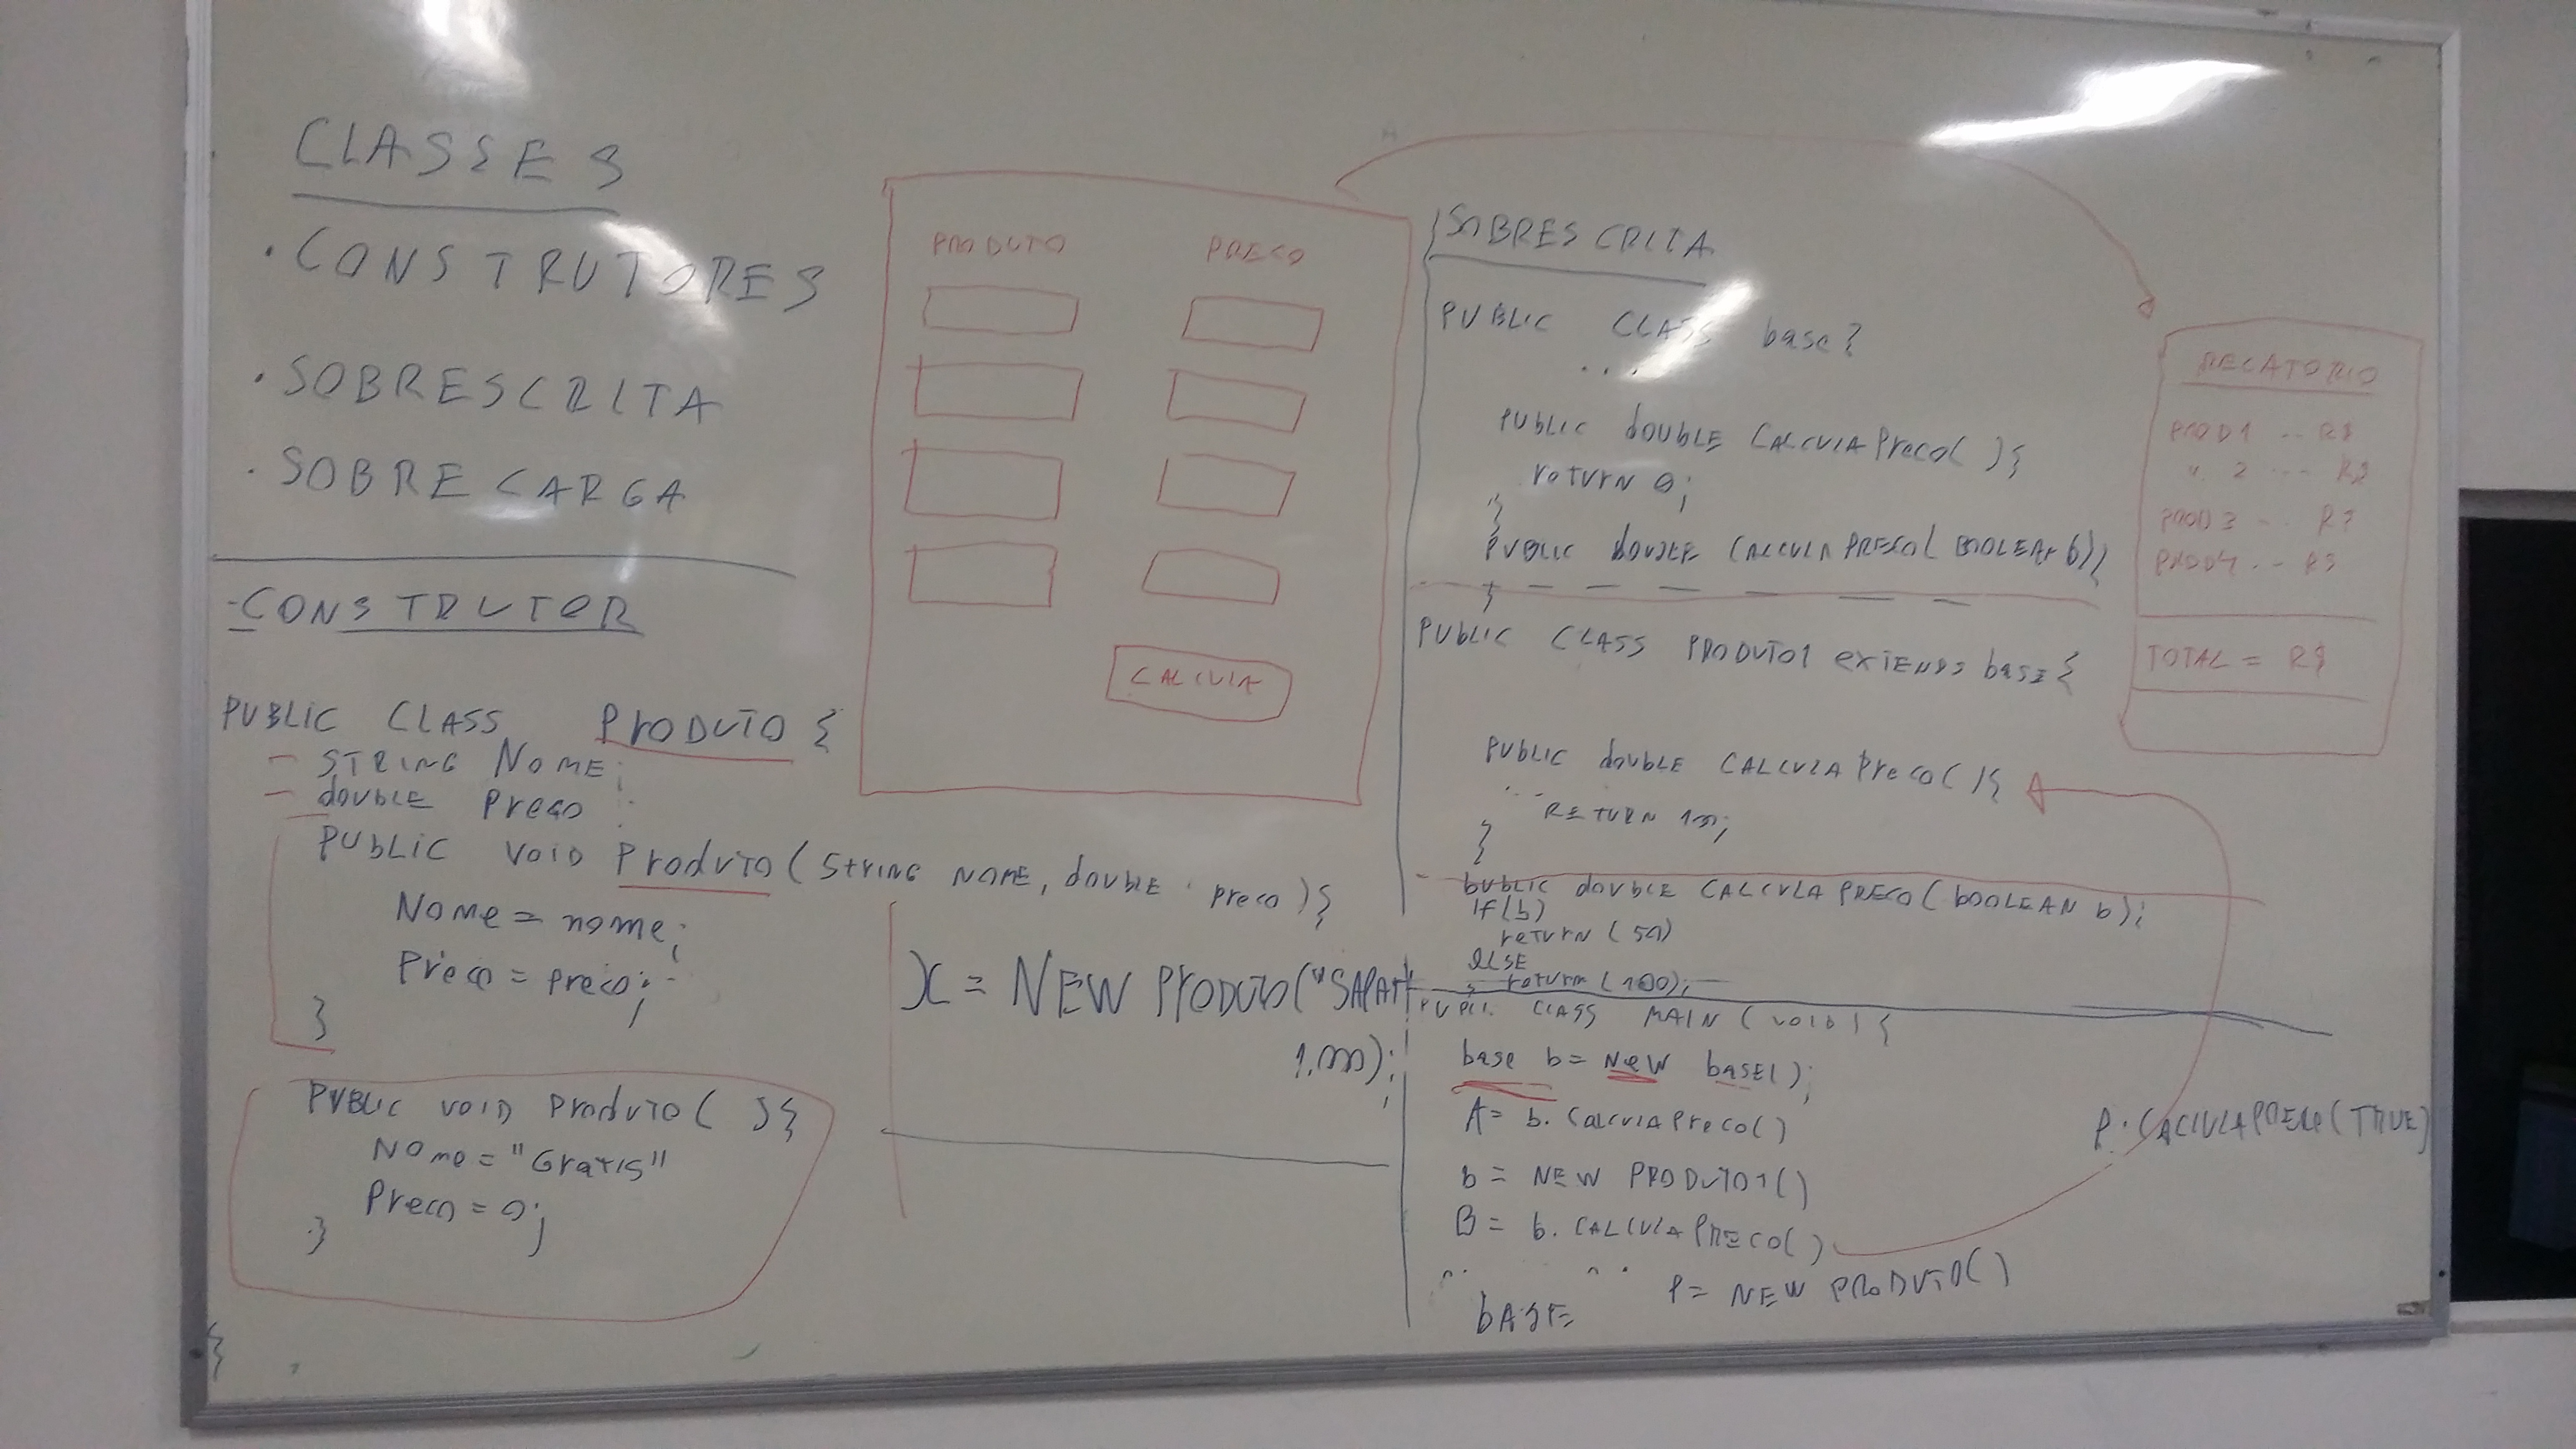 CLASSES
· CONSTRUTORES
· SOBRESCRITA
· SOBRECARGA
- CONSTRUTOR
PUBLIC CLASS PrODUTO {
- STRING NOME;
- double Preco ;
PUBLIC VOID Produto ( String NOME, double preco ) {
Nome = nome;
Preco = preco;
}
PUBLIC VOID Produto ( ) {
Nome = "Gratis"
Preco = 0;
}
}
PRODUTO PRECO
CALCULA
X = NEW PrODUTO ("SAPAT
1,00);
SOBRESCRITA
PUBLIC CLASS base {
...
PUBLIC double CALCULAPreco( ) {
return 0;
}
PUBLIC double CALCULAPRECO( BOOLEAN b) {
}
PUBLIC CLASS PRODUTO1 extends base {
PUBLIC double CALCULA Preco( ) {
...
RETURN 100;
}
public double CALCULA PRECO ( BOOLEAN b);
if (b)
return (50)
ELSE
return (100);
}
PUBLI. CLASS MAIN (VOID) {
base b = New base();
A = b. CalculaPreco()
b = NEW PRODUTO1()
B = b. CALCULAPRECO()
P = NEW PRODUTO()
bASE
P. CALCULAPRECO (TRUE)
RELATORIO
PROD1 .. R$
" 2 ... R$
PROD3 ... R$
PROD4 .. R$
TOTAL = R$